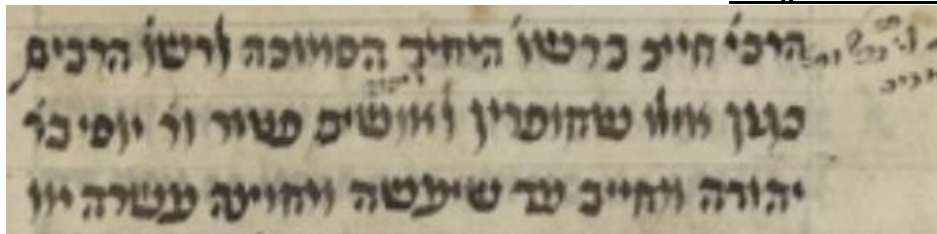 הרבי' חייב ברשו' היחיד הסמוכה לרשו' הרבים
כגון אלו שחופרין לאושים פטור ור' יוסי בר'
יהודה מחייב עד שיעשה מחיצה עשרה